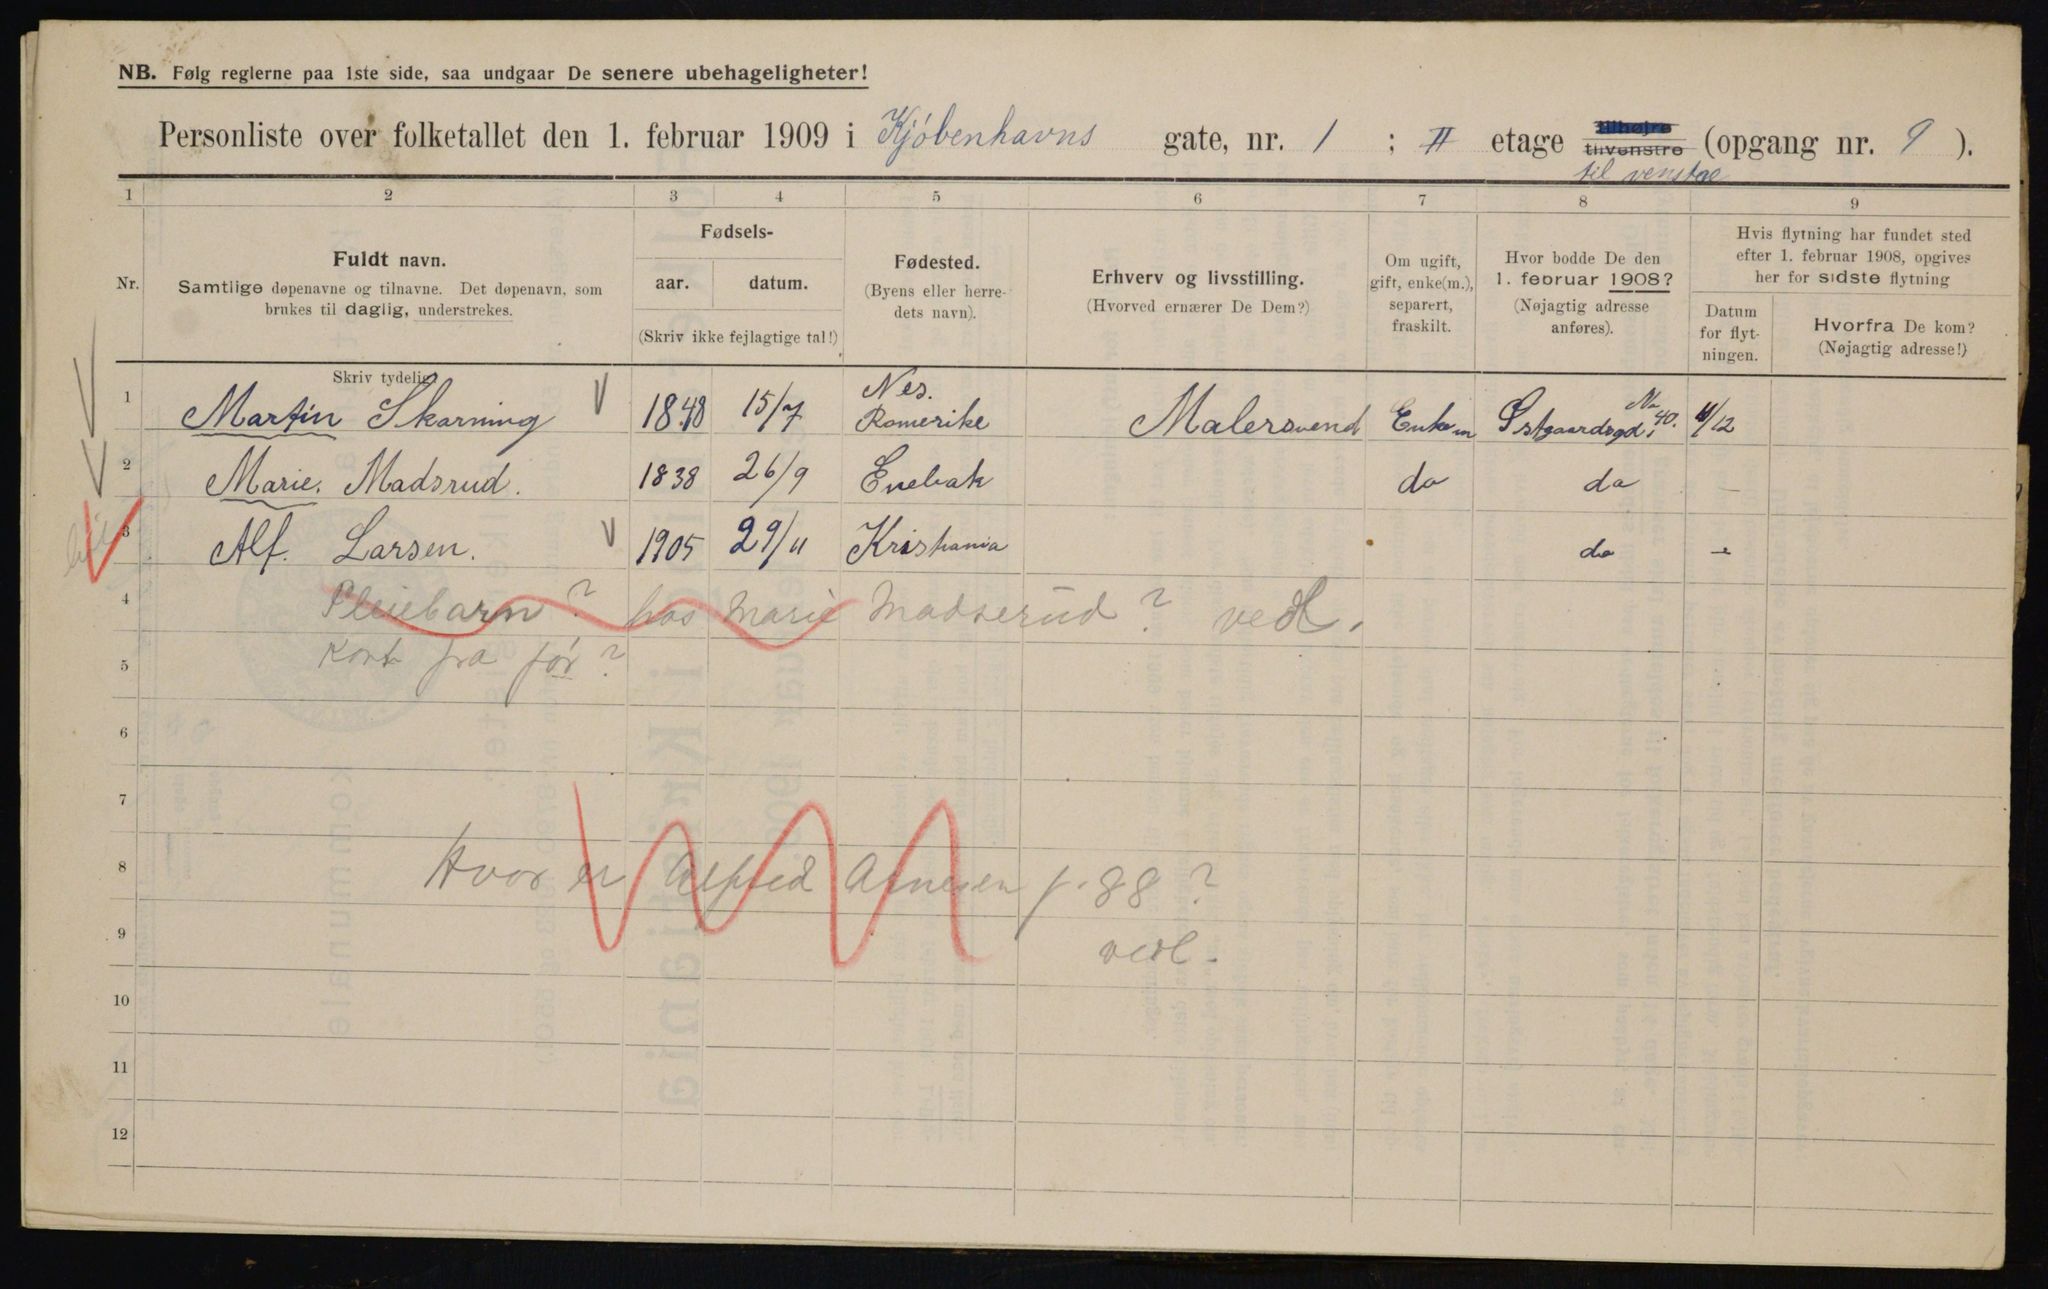 NB. Følg reglerne paa 1ste side, saa undgaar De senere ubehageligheter!
Personliste over folketallet den 1. februar 1909 i Kjøbenhavns gate, nr. 1 ; II etage tilhøjre tilvenstre (opgang nr. 9 ).
til venstre
1 2 3 4 5 6 7 8 9
Nr.
Fuldt navn.
Samtlige døpenavne og tilnavne. Det døpenavn, som
brukes til daglig, understrekes.
Fødsels-
aar. datum.
(Skriv ikke fejlagtige tal!)
Fødested.
(Byens eller herre-
dets navn).
Erhverv og livsstilling.
(Hvorved ernærer De Dem?)
Om ugift,
gift, enke(m.),
separert,
fraskilt.
Hvor bodde De den
1. februar 1908?
(Nøjagtig adresse
anføres).
Hvis flytning har fundet sted
efter 1. februar 1908, opgives
her for sidste flytning
Datum
for flyt-
ningen.
Hvorfra De kom?
(Nøjagtig adresse!)
Skriv tydelig
1 Martin Skarning 1848 15/7 Nes. Romerike Malersvend Enkem Østgaardsgd. No 40. /12
2 Marie. Madsrud. 1838 26/9 Enebak do do –
3 Alf. Larsen. 1905 29/11 Kristiania do –
4 Pleiebarn? hos Marie Madserud? vedl.
5 Kort fra før?
6
7
8 Hvor er Alfred Arnesen f. 88?
9 vedl.
10
11
12